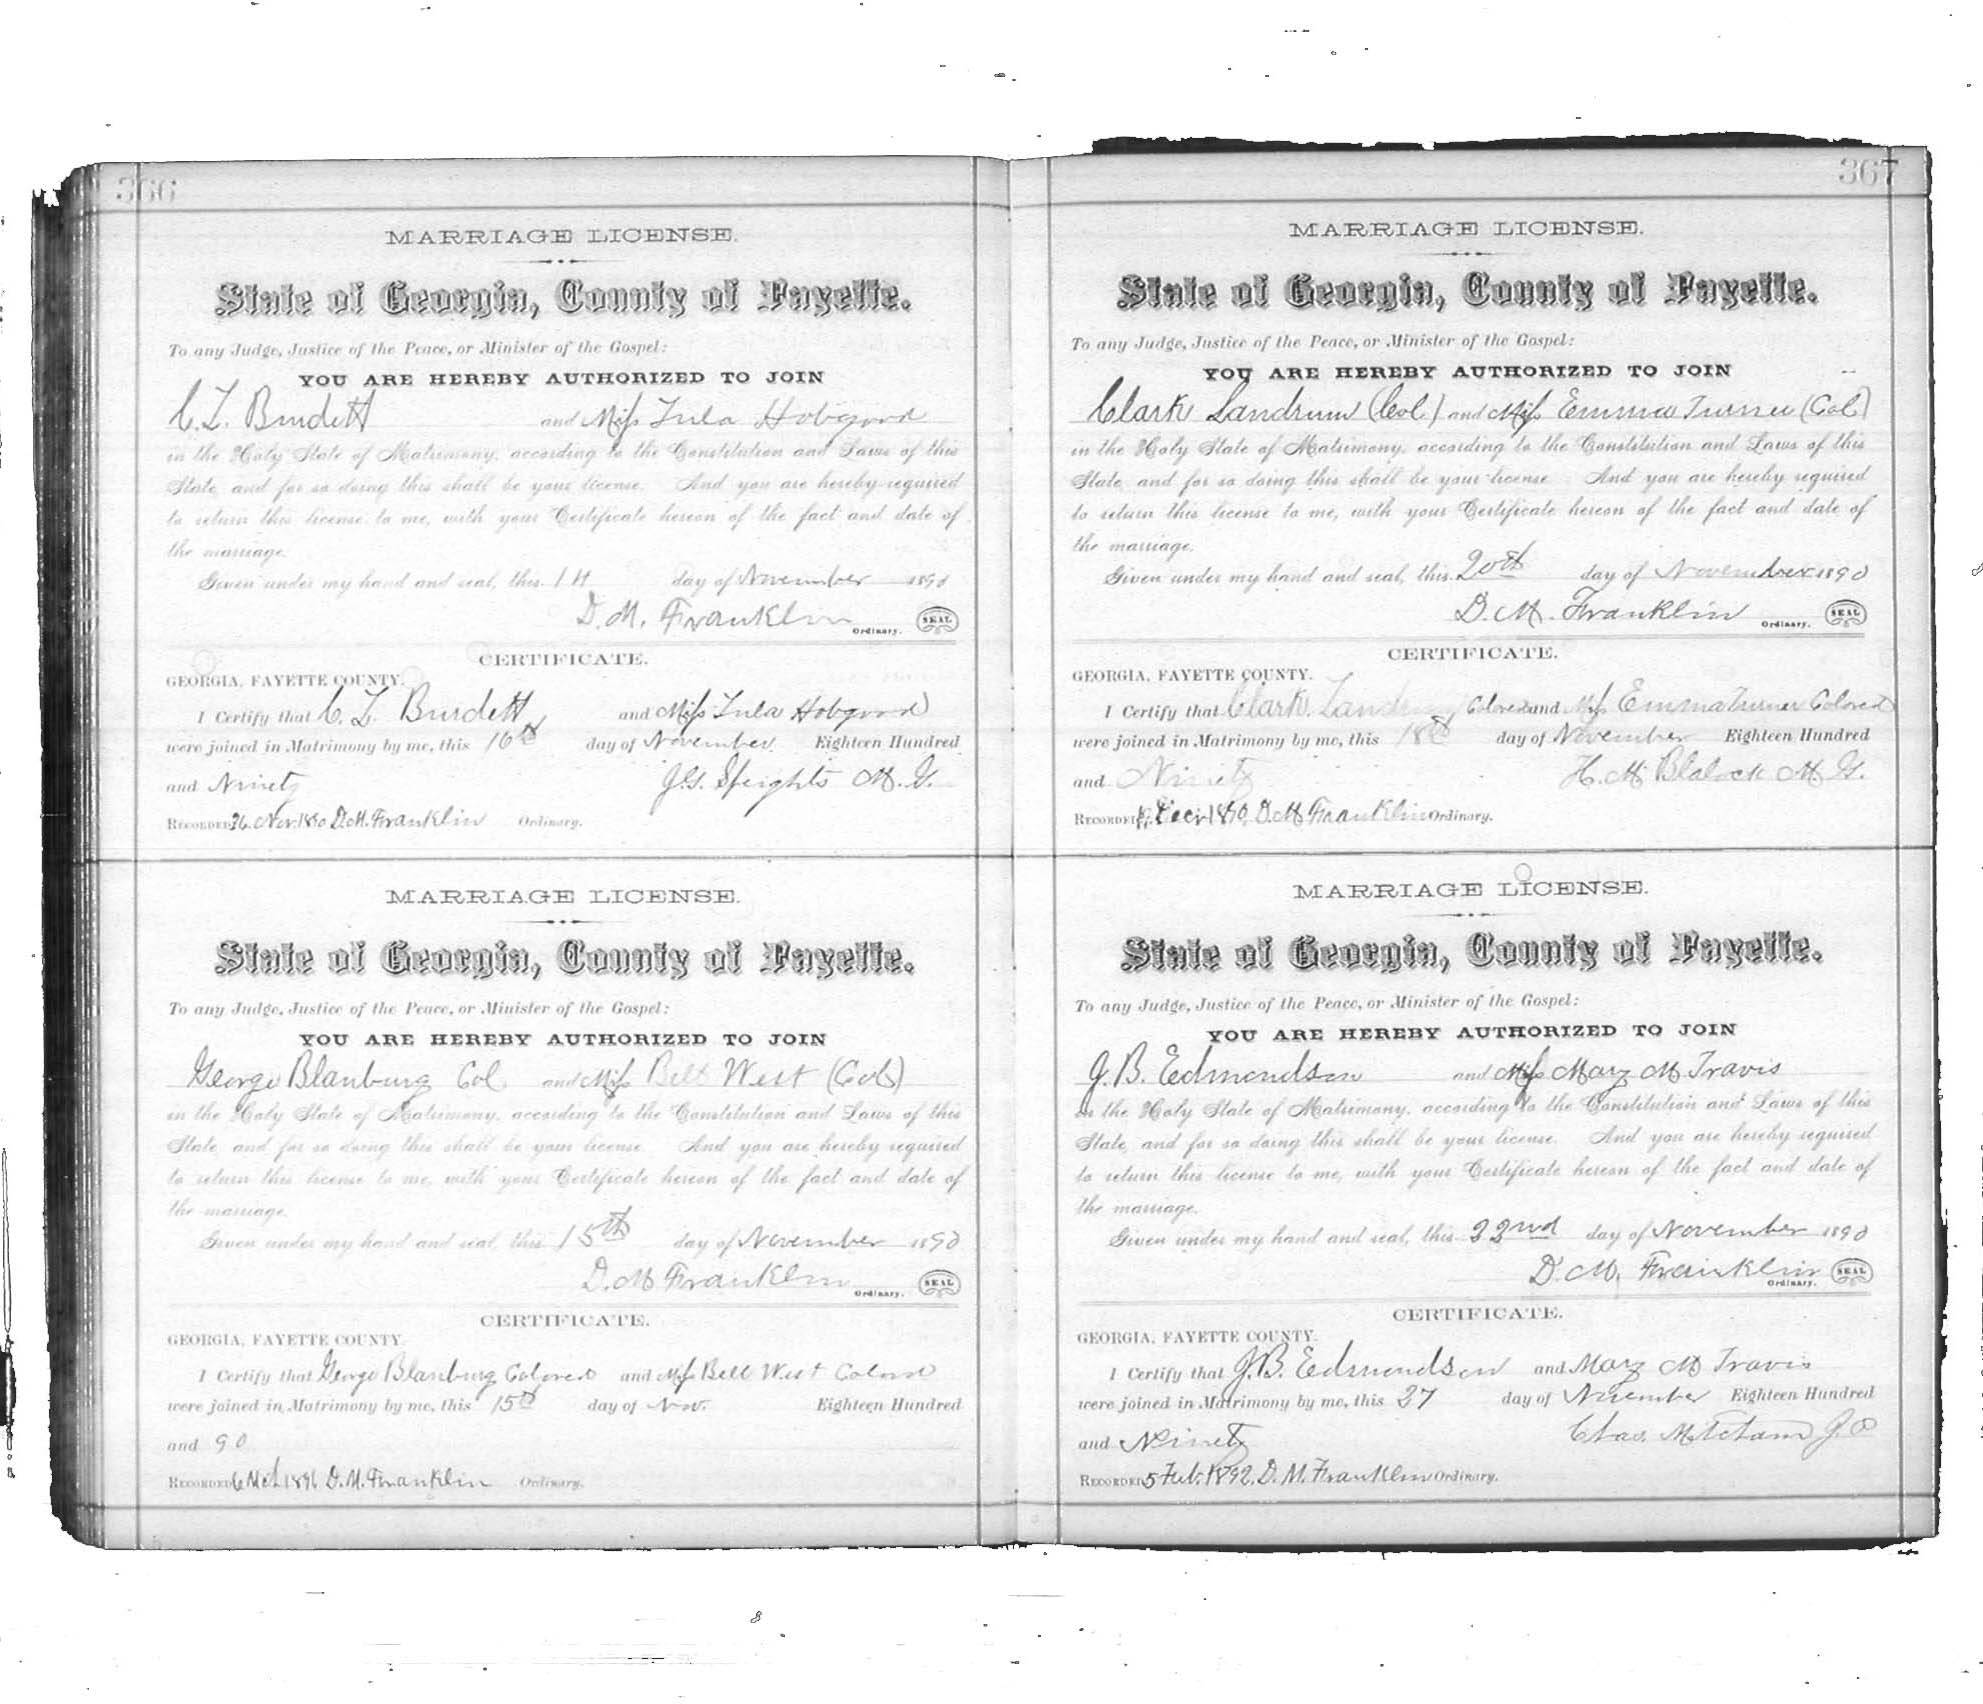 366
MARRIAGE LICENSE.
State of Georgia, County of Fayette.
To any Judge, Justice of the Peace, or Minister of the Gospel:
YOU ARE HEREBY AUTHORIZED TO JOIN
C. Z. Burdett and Miss Lula Hobgood
in the Holy State of Matrimony, according to the Constitution and Laws of this
State, and for so doing this shall be your license. And you are hereby required
to return this license to me, with your Certificate hereon of the fact and date of
the marriage.
Given under my hand and seal, this day of November 1890
D. M. Franklin Ordinary. SEAL
CERTIFICATE.
GEORGIA, FAYETTE COUNTY.
I Certify that C. Z. Burdett and Miss Lula Hobgood
were joined in Matrimony by me, this 16th day of November Eighteen Hundred
and Ninety J. G. Speights M. G.
RECORDED 26. Nov. 1890 D. M. Franklin Ordinary.
MARRIAGE LICENSE.
State of Georgia, County of Fayette.
To any Judge, Justice of the Peace, or Minister of the Gospel:
YOU ARE HEREBY AUTHORIZED TO JOIN
George Blanburg Col and Miss Bell West (Col)
in the Holy State of Matrimony, according to the Constitution and Laws of this
State, and for so doing this shall be your license. And you are hereby required
to return this license to me, with your Certificate hereon of the fact and date of
the marriage.
Given under my hand and seal, this 15th day of November 1890
D. M Franklin Ordinary. SEAL
CERTIFICATE.
GEORGIA, FAYETTE COUNTY.
I Certify that George Blanburg Colored and Miss Bell West Colored
were joined in Matrimony by me, this 15th day of Nov. Eighteen Hundred
and 90
RECORDED 6 Mch 1891 D. M. Franklin Ordinary.
367
MARRIAGE LICENSE.
State of Georgia, County of Fayette.
To any Judge, Justice of the Peace, or Minister of the Gospel:
YOU ARE HEREBY AUTHORIZED TO JOIN
Clark Landrum (Col.) and Miss Emma Turner (Col)
in the Holy State of Matrimony, according to the Constitution and Laws of this
State, and for so doing this shall be your license. And you are hereby required
to return this license to me, with your Certificate hereon of the fact and date of
the marriage.
Given under my hand and seal, this 20th day of November 1890
D. M. Franklin Ordinary. SEAL
CERTIFICATE.
GEORGIA, FAYETTE COUNTY.
I Certify that Clark Landrum Colored and Miss Emma Turner Colored
were joined in Matrimony by me, this 18th day of November Eighteen Hundred
and Ninety H. M Blalock M G.
RECORDED Dec. 1890. D. M Franklin Ordinary.
MARRIAGE LICENSE.
State of Georgia, County of Fayette.
To any Judge, Justice of the Peace, or Minister of the Gospel:
YOU ARE HEREBY AUTHORIZED TO JOIN
J. B. Edmondson and Miss Mary M Travis
in the Holy State of Matrimony, according to the Constitution and Laws of this
State, and for so doing this shall be your license. And you are hereby required
to return this license to me, with your Certificate hereon of the fact and date of
the marriage.
Given under my hand and seal, this 22nd day of November 1890
D. M. Franklin Ordinary. SEAL
CERTIFICATE.
GEORGIA, FAYETTE COUNTY.
I Certify that J. B. Edmondson and Mary M Travis
were joined in Matrimony by me, this 27 day of November Eighteen Hundred
and Ninety Chas. McCtam J. P
RECORDED 5 Feb. 1892. D. M. Franklin Ordinary.